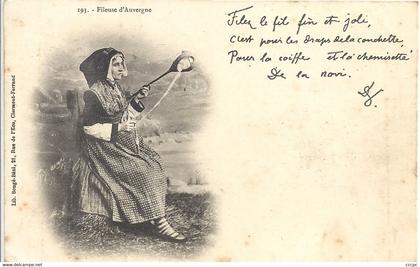 193. - Fileuse d'Auvergne
Filez le fil fin et joli,
C'est pour les draps de la couchette,
Pour la coiffe et la chemisette
De la novi.
Lib. Rongé-Biat, 21, Rue de l'Eau, Clermont-Ferrand